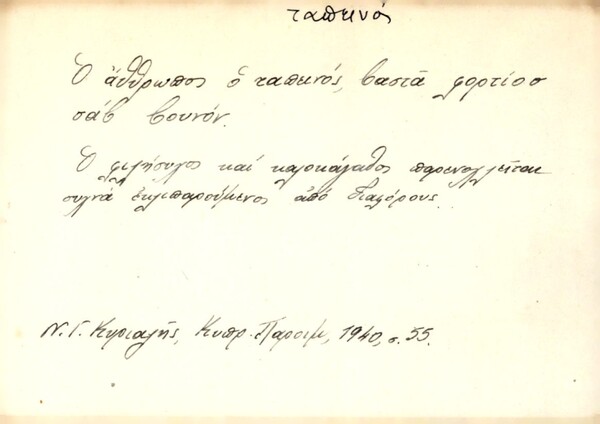 ταπεινός
Ὁ ἄθθρωπος ὁ ταπεινός, βαστᾶ φορτίον
σάβ βουνόν.
Ὁ φιλήσυχος καί καλοκάγαθος παρενοχλεῖται
συχνά ἐκλιπαρούμενος ἀπό διαφόρους.
Ν. Γ. Κυριαζῆς, Κυπρ. Παροιμ, 1940, σ. 55.